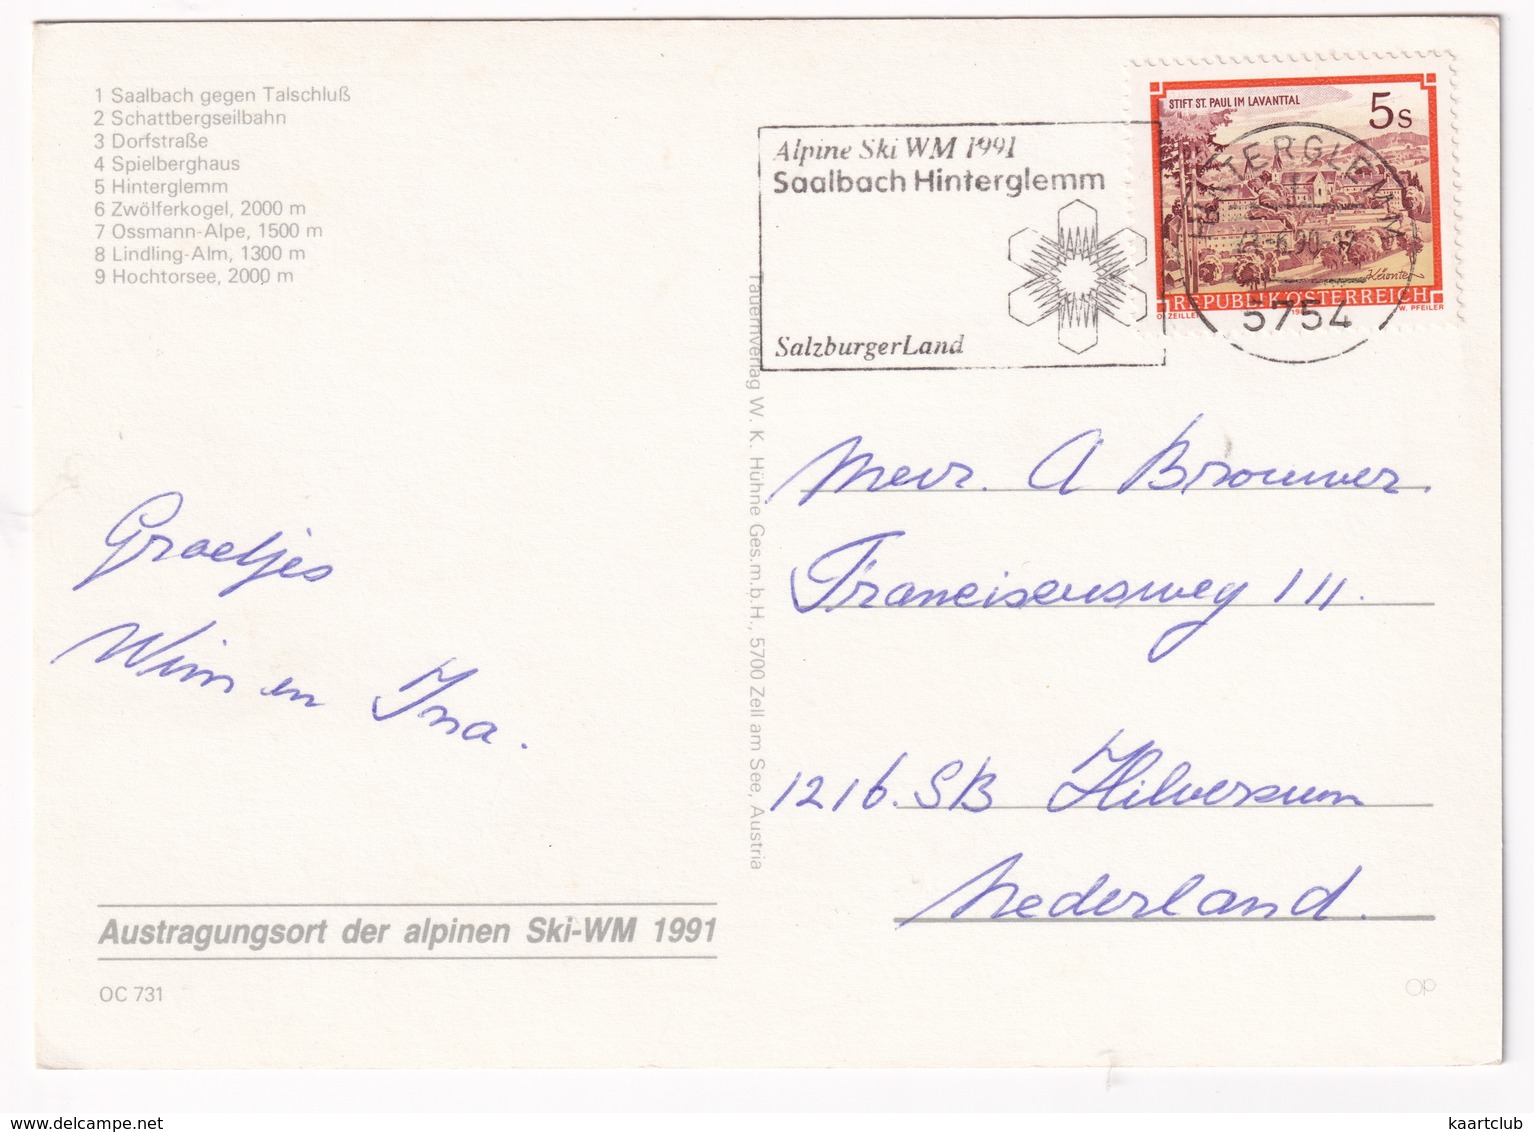 1 Saalbach gegen Talschluß
2 Schattbergseilbahn
3 Dorfstraße
4 Spielberghaus
5 Hinterglemm
6 Zwölferkogel, 2000 m
7 Ossmann-Alpe, 1500 m
8 Lindling-Alm, 1300 m
9 Hochtorsee, 2000 m
Groetjes
Wim en Ina.
Austragungsort der alpinen Ski-WM 1991
OC 731
Tauernverlag W. K. Hühne Ges.m.b.H., 5700 Zell am See, Austria
Alpine Ski WM 1991
Saalbach Hinterglemm
SalzburgerLand
STIFT ST. PAUL IM LAVANTTAL
5 S
REPUBLIK ÖSTERREICH
O. ZEILLER
W. PFEILER
HINTERGLEMM
5754
Mevr. A Brouwer.
Franciscusweg 111.
1216.SB Hilversum
Nederland.
OP
delcampe.net
kaartclub